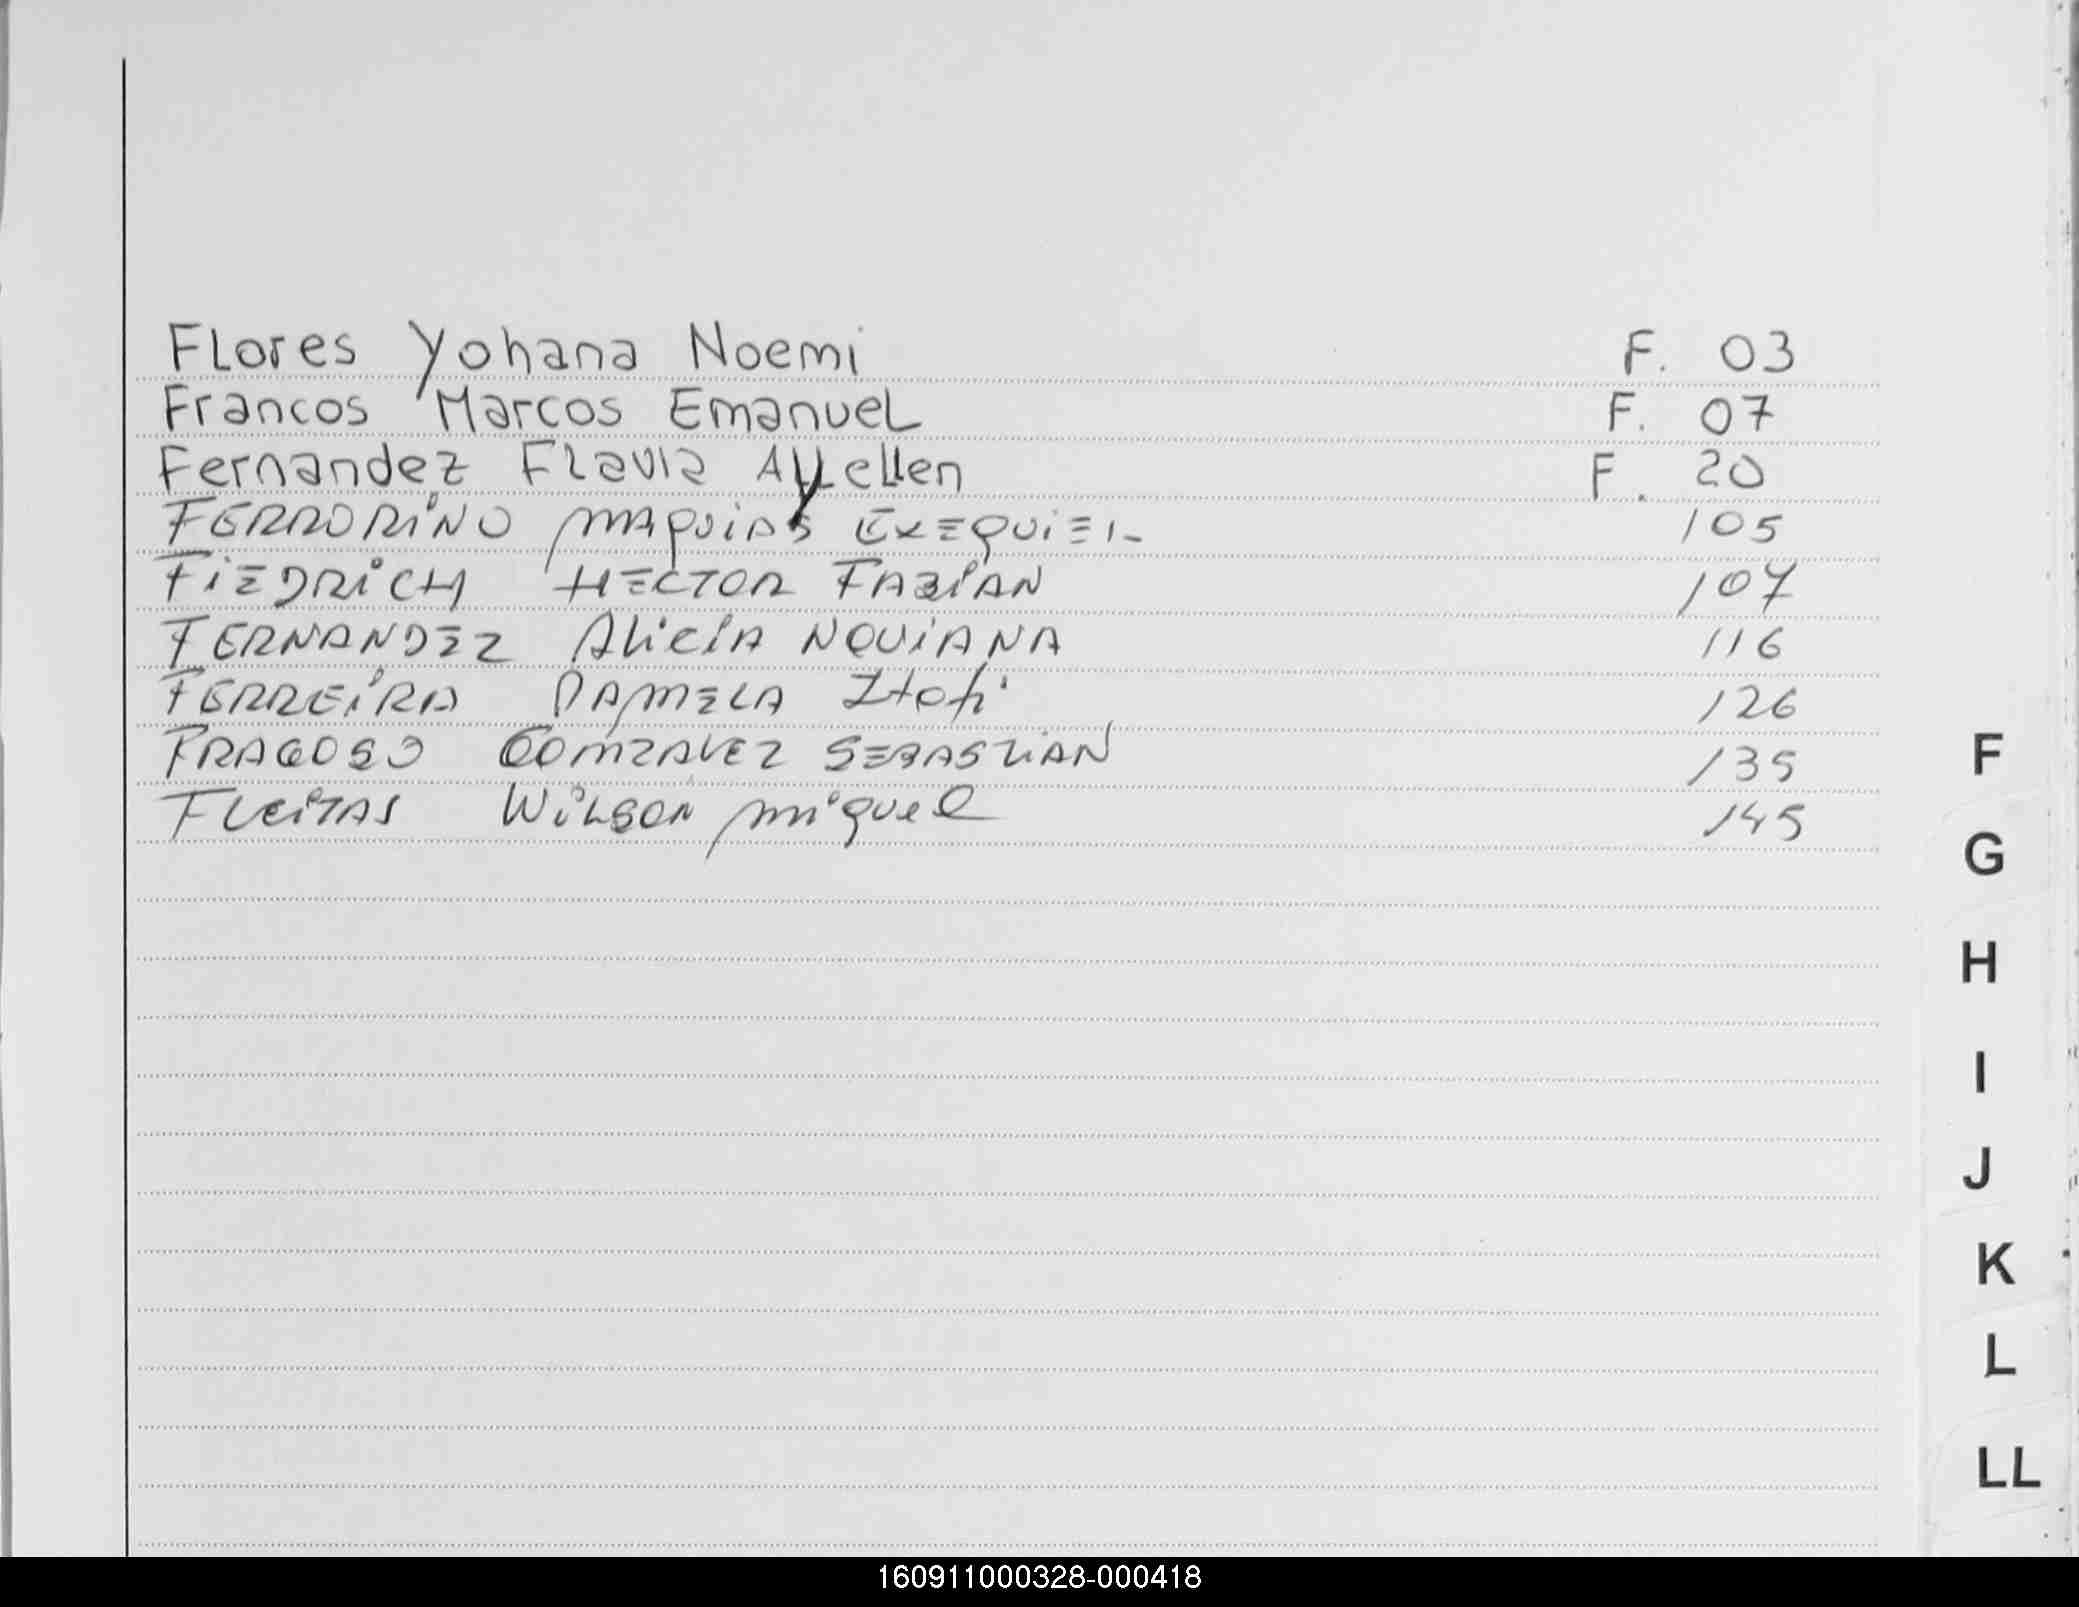 Flores Yohana Noemi F. 03
Francos Marcos Emanuel F. 07
Fernandez Flavia Ayellen F. 20
FERRORINO EXEQUIEL 105
FIEDRICH HECTOR FABIAN 107
FERNANDEZ Alicia 116
FERREIRA PAMELA 126
FRAGOSO GOMZALEZ SEBASTIAN 135
FLEITAS Wilson miguel 145
F
G
H
I
J
K
L
LL
160911000328-000418